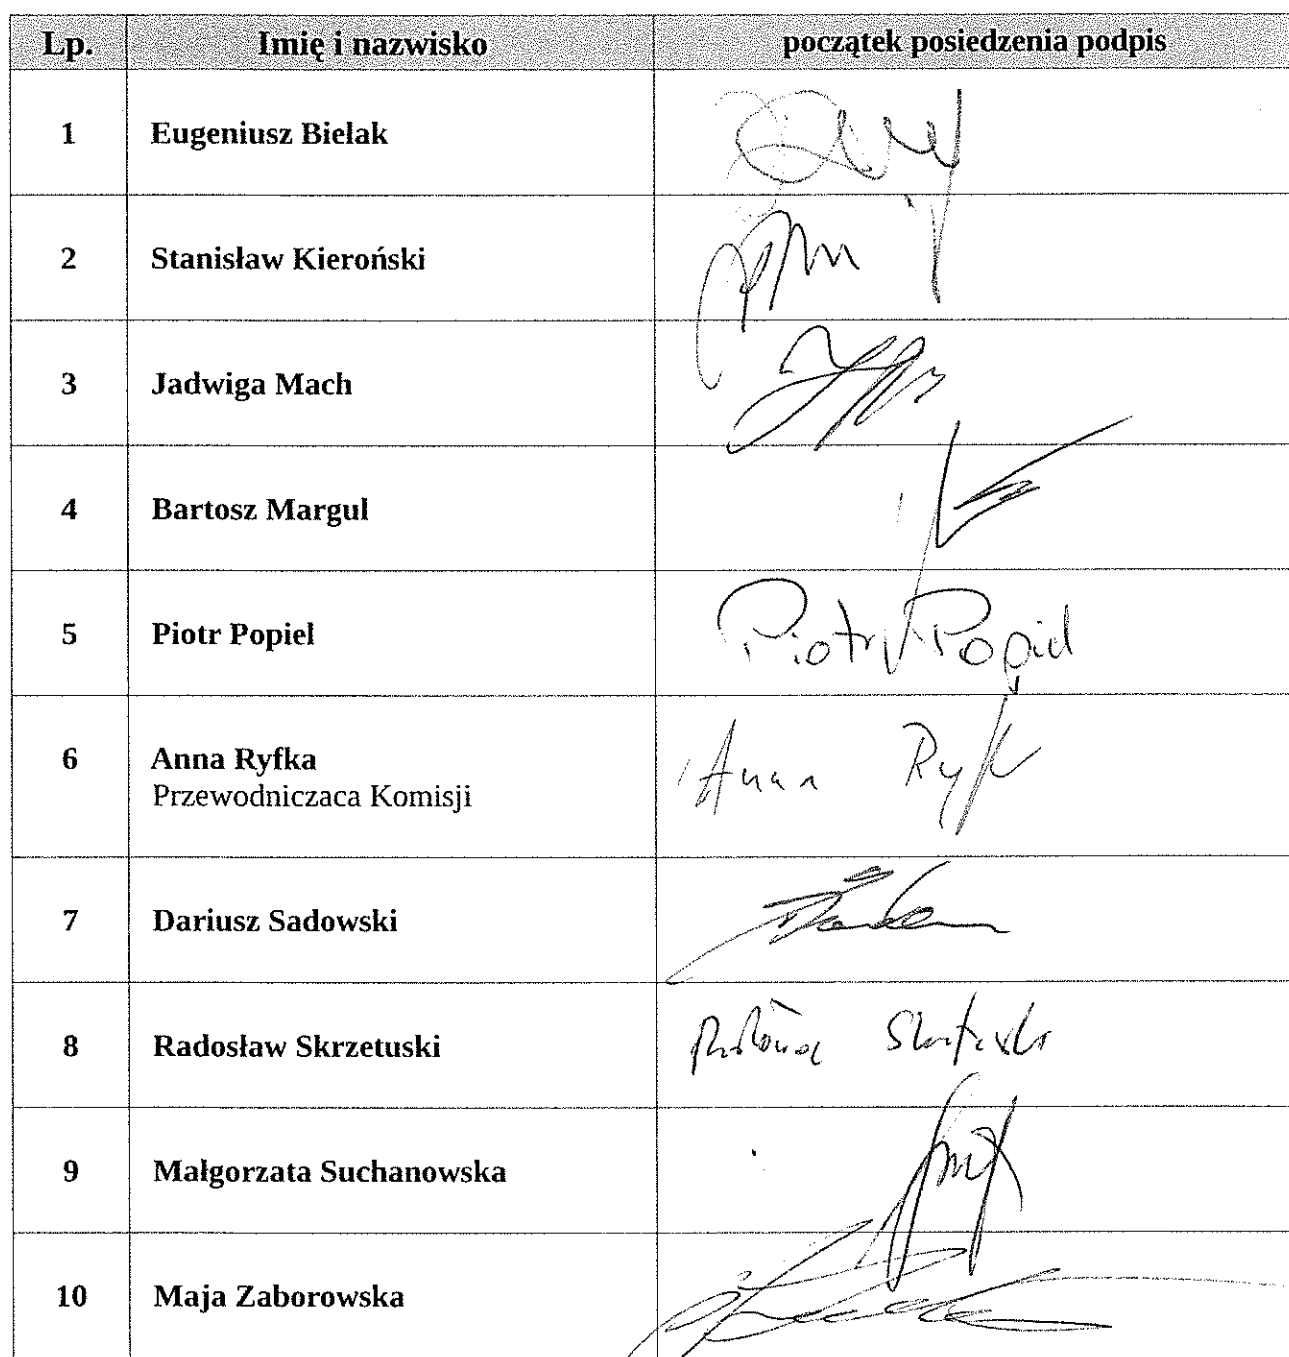 Lp. Imię i nazwisko początek posiedzenia podpis
1 Eugeniusz Bielak
2 Stanisław Kieroński
3 Jadwiga Mach
4 Bartosz Margul
5 Piotr Popiel Piotr Popiel
6 Anna Ryfka Anna
Przewodniczaca Komisji
7 Dariusz Sadowski
8 Radosław Skrzetuski
9 Małgorzata Suchanowska
10 Maja Zaborowska